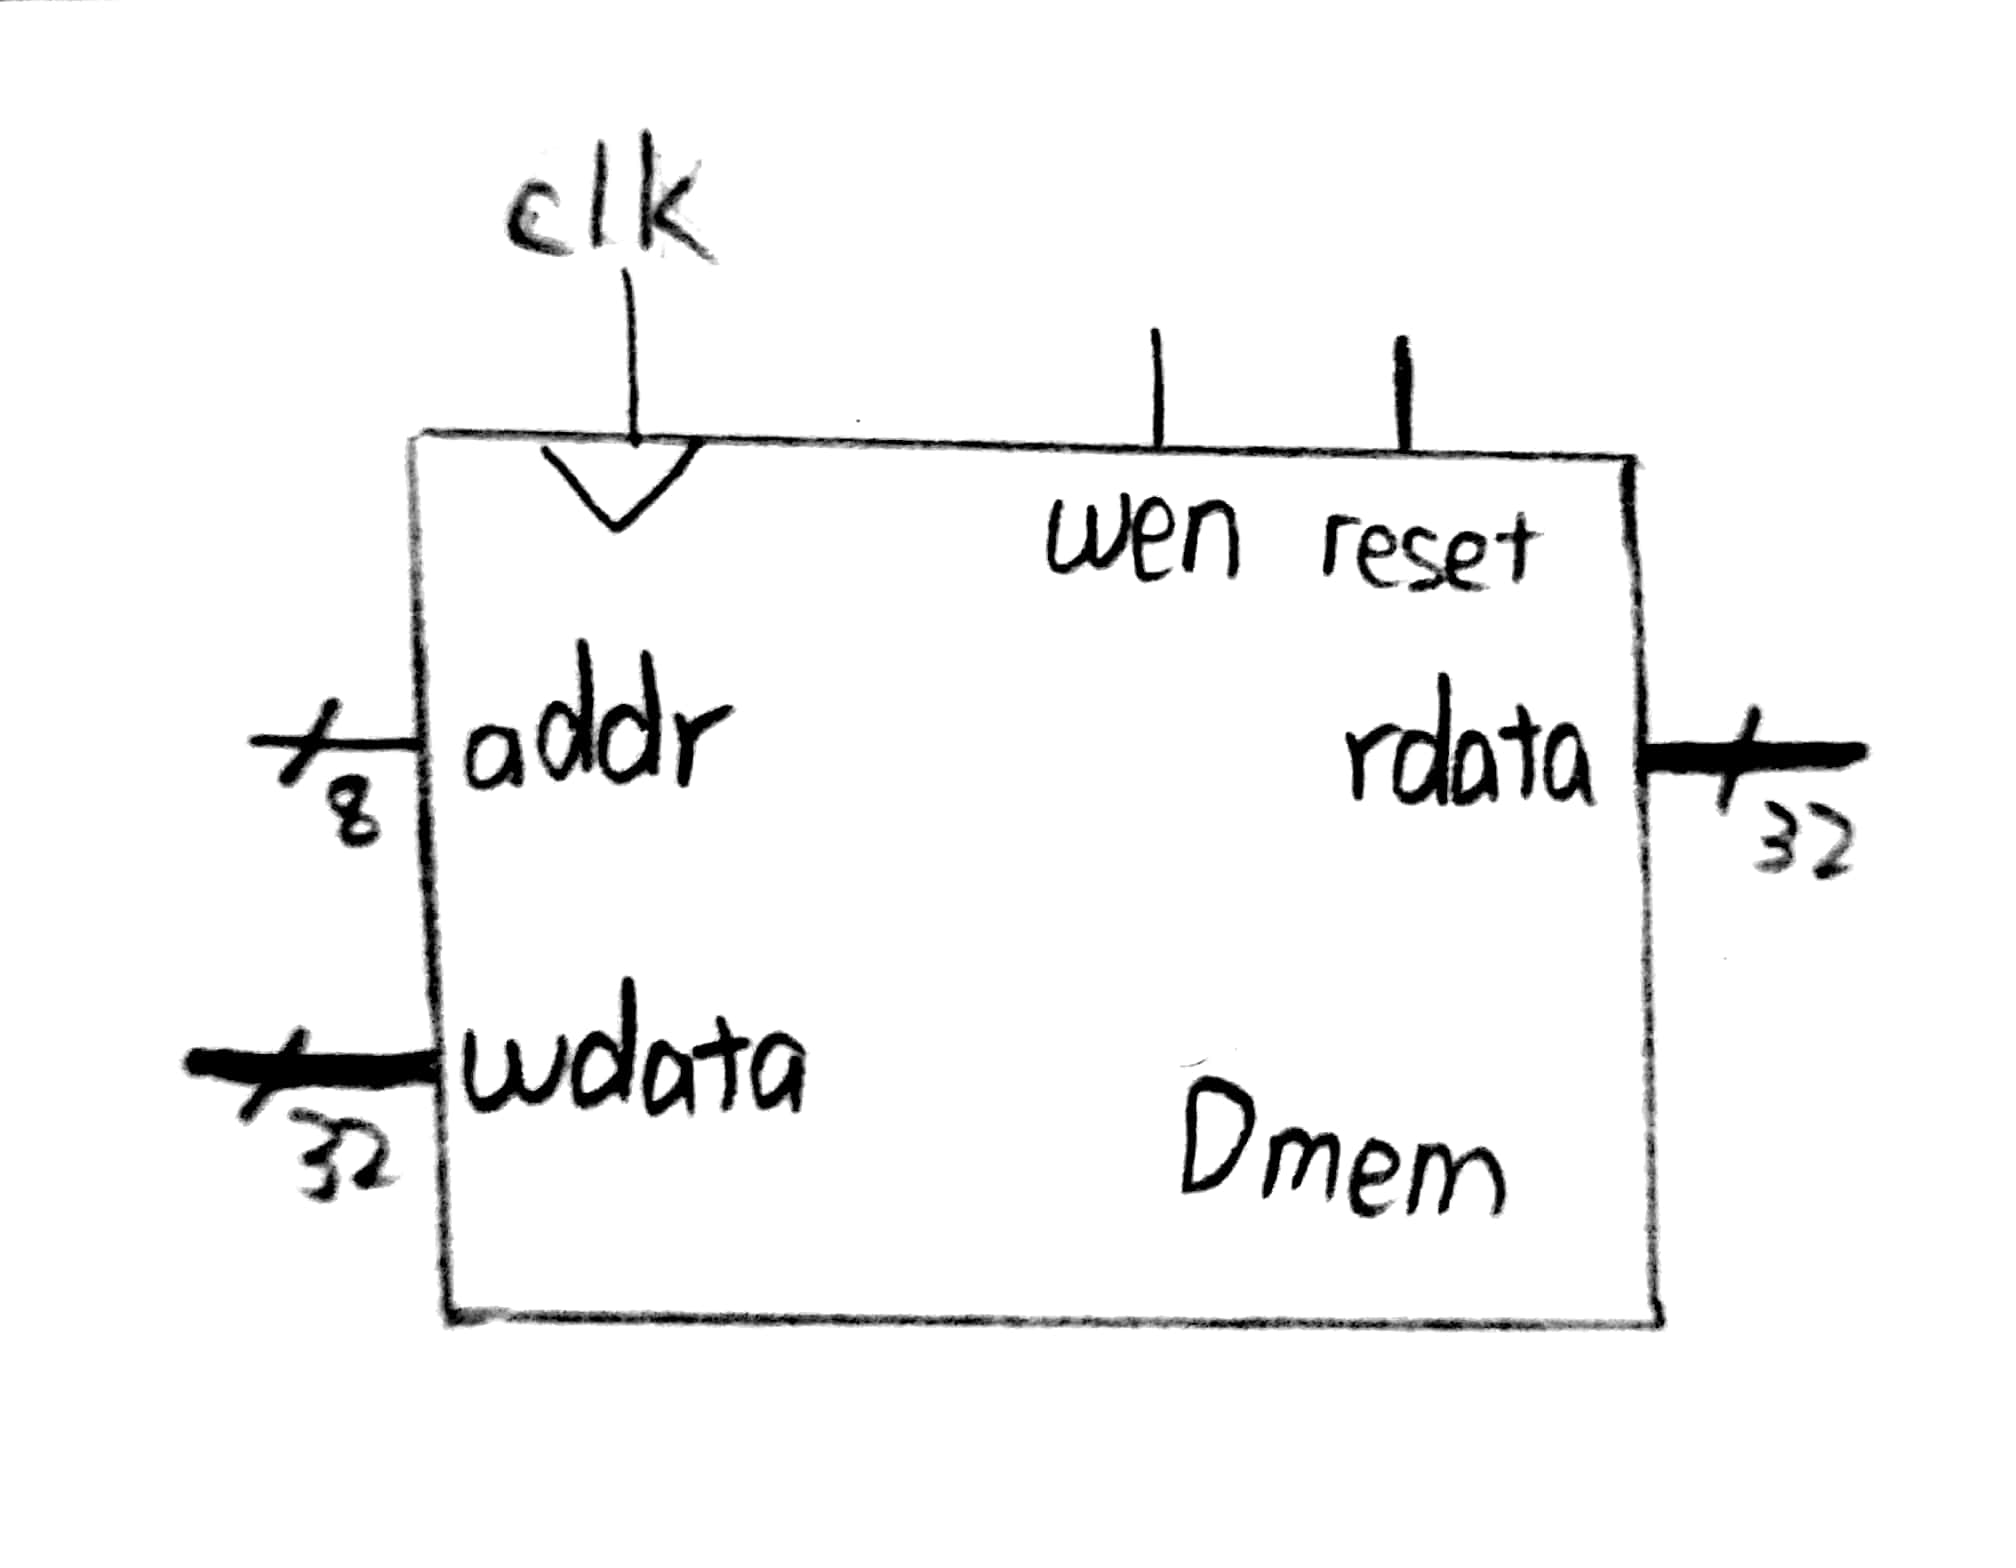 clk
wen reset
addr
rdata
8
32
wdata
32
Dmem